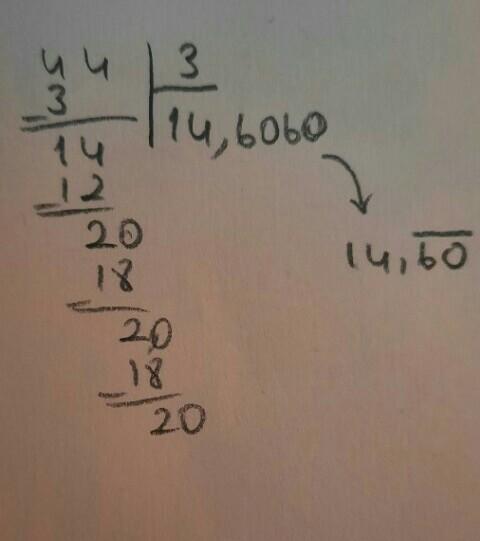 44 | 3
-3
14,6060
14
-12
20
18
14,6̅0̅
20
-18
20